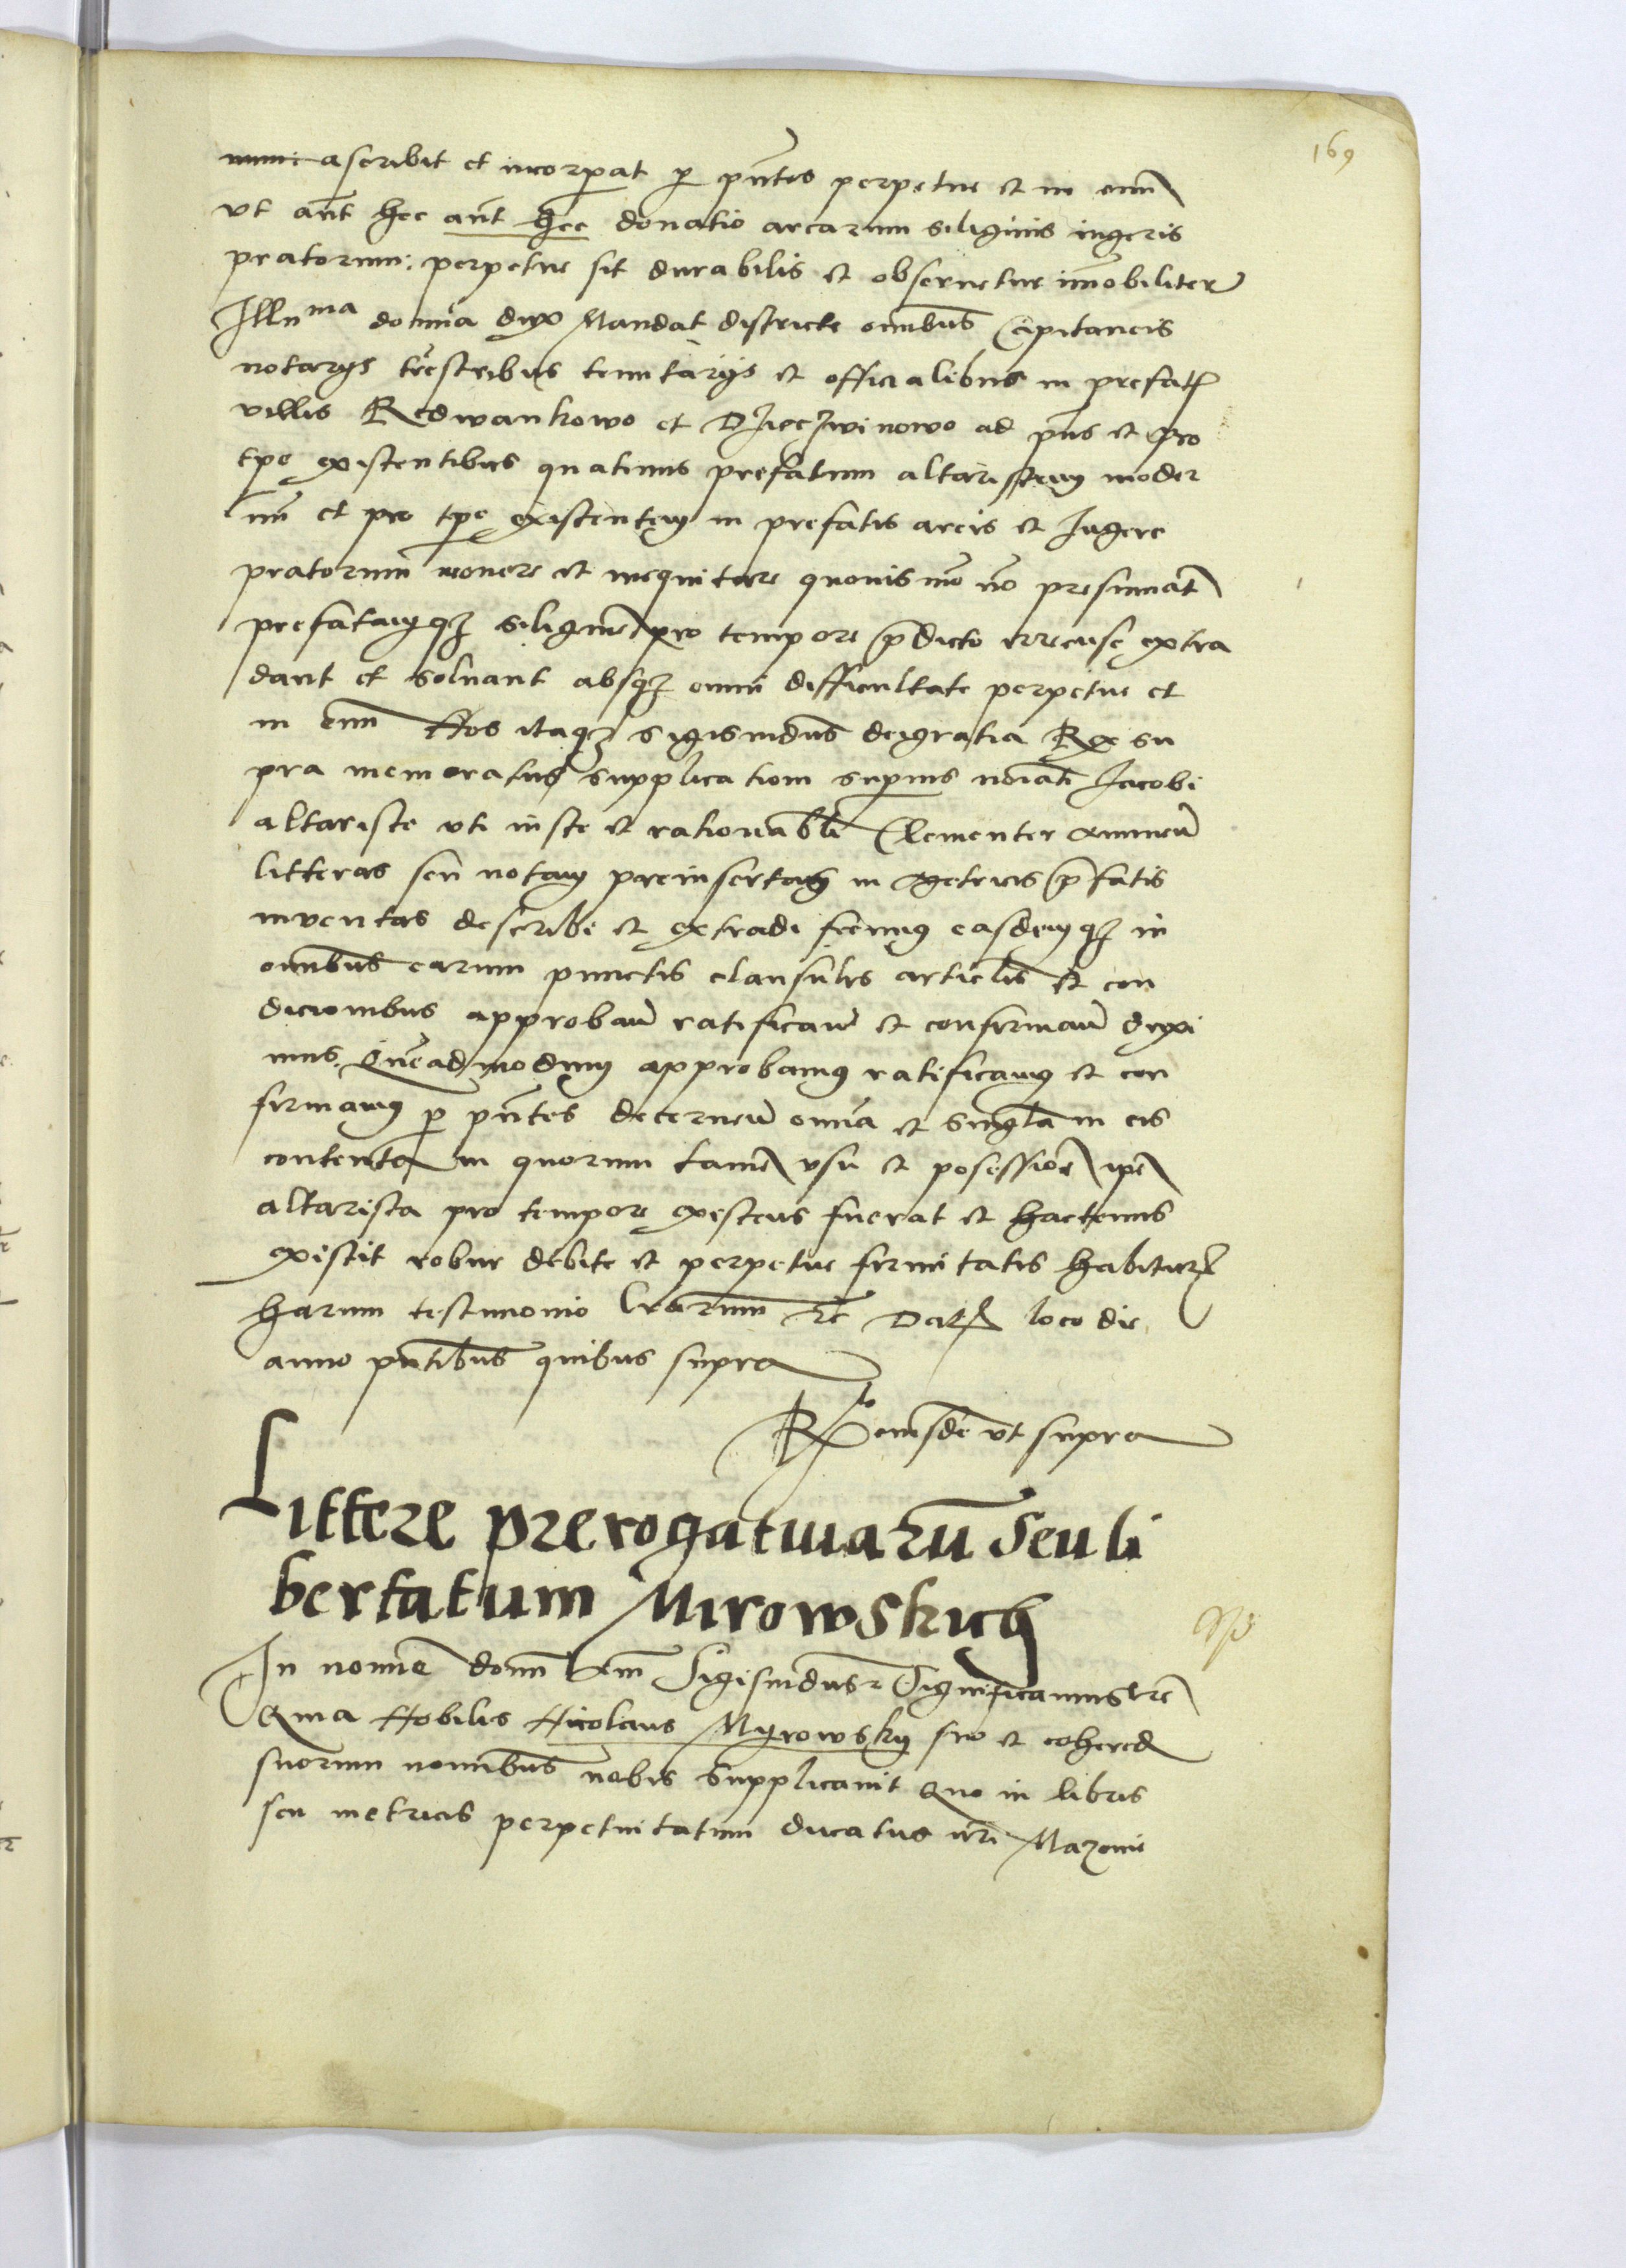 169
ascribit et incorpat p pntes perpetue et in eum
ut ant hec ant hec donatio arearum siliginis iugeris
pratorum: perpetue sit durabilis et obseruetur imobiliter
Illuma domina dux Mandat districte omibus Capitaneis
notarys terestribus tenutarys et officialibus in prefat
villis Redwankowo et Dzieczwinowo ad pns et pro
tpe existentibus quatinus prefatum altaristam moder
nu et pro tpe existentem in prefatis areis et Iugere
pratorum mouere et inequitare quouis mo no presumat
prefatamqz siligine pro tempore pdicto extra
dant et soluant absqz omni difficultate perpetue et
in eum Nos itaqz Sigismdus deigratia Rex su
pra memoratus supplicatiom supius noiati Jacobi
altariste uti iuste et rationabli Clementer annueu
litteras seu notam preinsertas in metricis pfatis
inuentas describi et extradi fecimus easdemqz in
omibus earum punctis clausulis articlis et con
dicionibus approbau ratificau et confirmau duxi
mus. Queadmodum approbamus ratificamus et con
firmamus p pntes decerneu omia et singla in eis
contenta in quorum tame usu et posessioe ipe
altarista pro tempore existens fuerat et hactenus
existit robur debite et perpetue firmitatis habitur
harum testimonio lrarum etc Dat loco die
anno pntibus quibus supra
Rto eiusde ut supra
Littere prerogatiuaru seu li
bertatum Mirowskich
In nomie domi am Sigismdus etc Significamus etc
Quia Nobilis Nicolaus Myrowsky suo et cohered
suorum nomibus nobis supplicauit Quo in libris
seu metricis perpetuitatum ducatus nri Mazouie